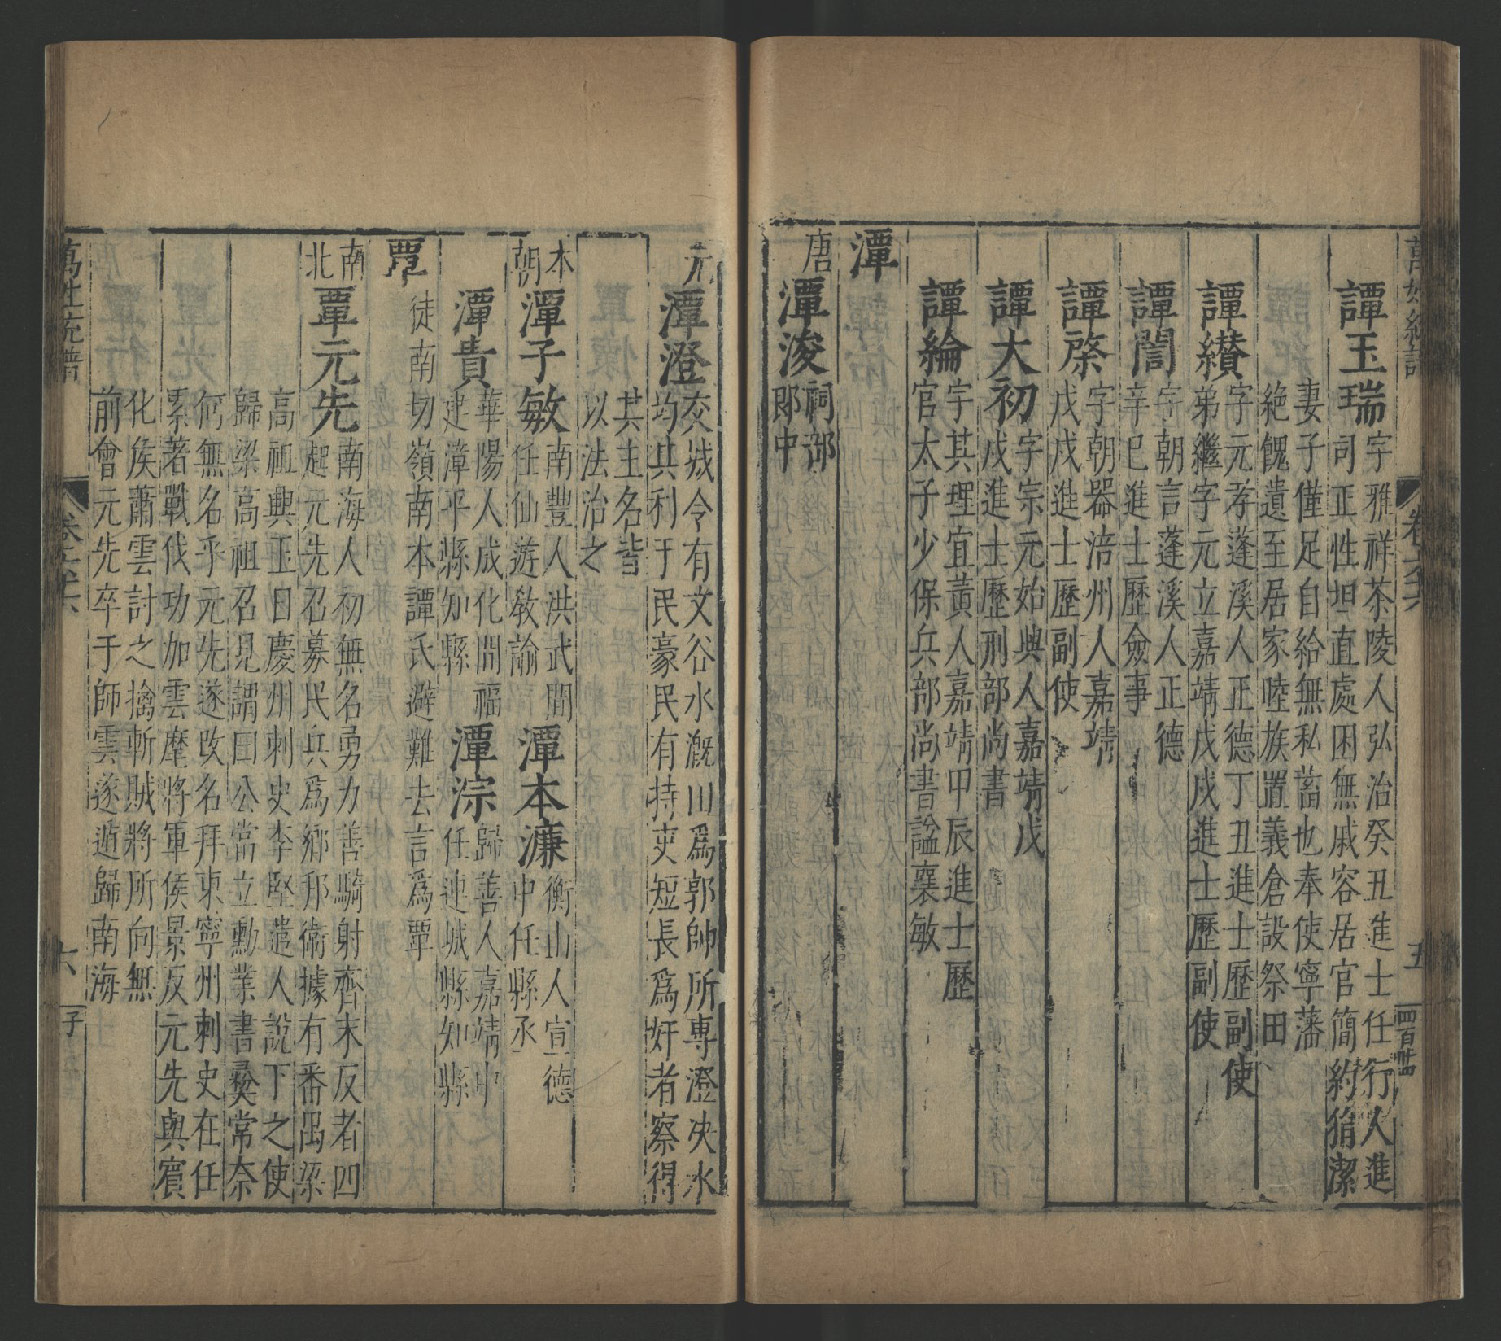 萬姓統譜
卷六十六
五
四百卅
譚玉瑞
字雅祥茶陵人弘治癸丑進士任行人進
司正性坦直處困無戚容居官簡約狷潔
妻子僅足自給無私畜也奉使寧藩
絶餽遺至居家睦族置義倉設祭田
譚纘
字元孝蓬溪人正德丁丑進士歷副使
弟繼字元立嘉靖戊戌進士歷副使
譚誾
字朝言蓬溪人正德
辛巳進士歷僉事
譚棨
字朝器涪州人嘉靖
戊戌進士歷副使
譚大初
字宗元始興人嘉靖戊
戌進士歷刑部尚書
譚綸
字其理宜黃人嘉靖甲辰進士歷
官太子少保兵部尚書謚襄敏
潭
唐
潭浚
祠部
郎中
元
潭澄
交城令有文谷水溉田爲郭帥所專澄决水
均其利于民豪民有持吏短長爲奸者察得
其主名皆
以法治之
本朝
潭子敏
南豐人洪武間
任仙遊教諭
潭本濂
衡山人宣德
中任縣丞
潭貴
華陽人成化間福
建漳平縣知縣
潭淙
歸善人嘉靖中
任連城縣知縣
覃
徒南切嶺南本譚氏避難去言爲覃
南北
覃元先
南海人初無名勇力善騎射齊末反者四
起元先召募民兵爲鄉邦衛據有番禺梁
高祖興王日慶州刺史李堅遣人說下之使
歸梁高祖召見謂曰公當立勳業書彜常奈
何無名乎元先遂改名拜東寧州刺史在任
累著戰伐功加雲麾將軍侯景反元先與賔
化侯蕭雲討之擒斬賊將所向無
前會元先卒于師雲遂遁歸南海
萬姓統譜
卷六十六
六